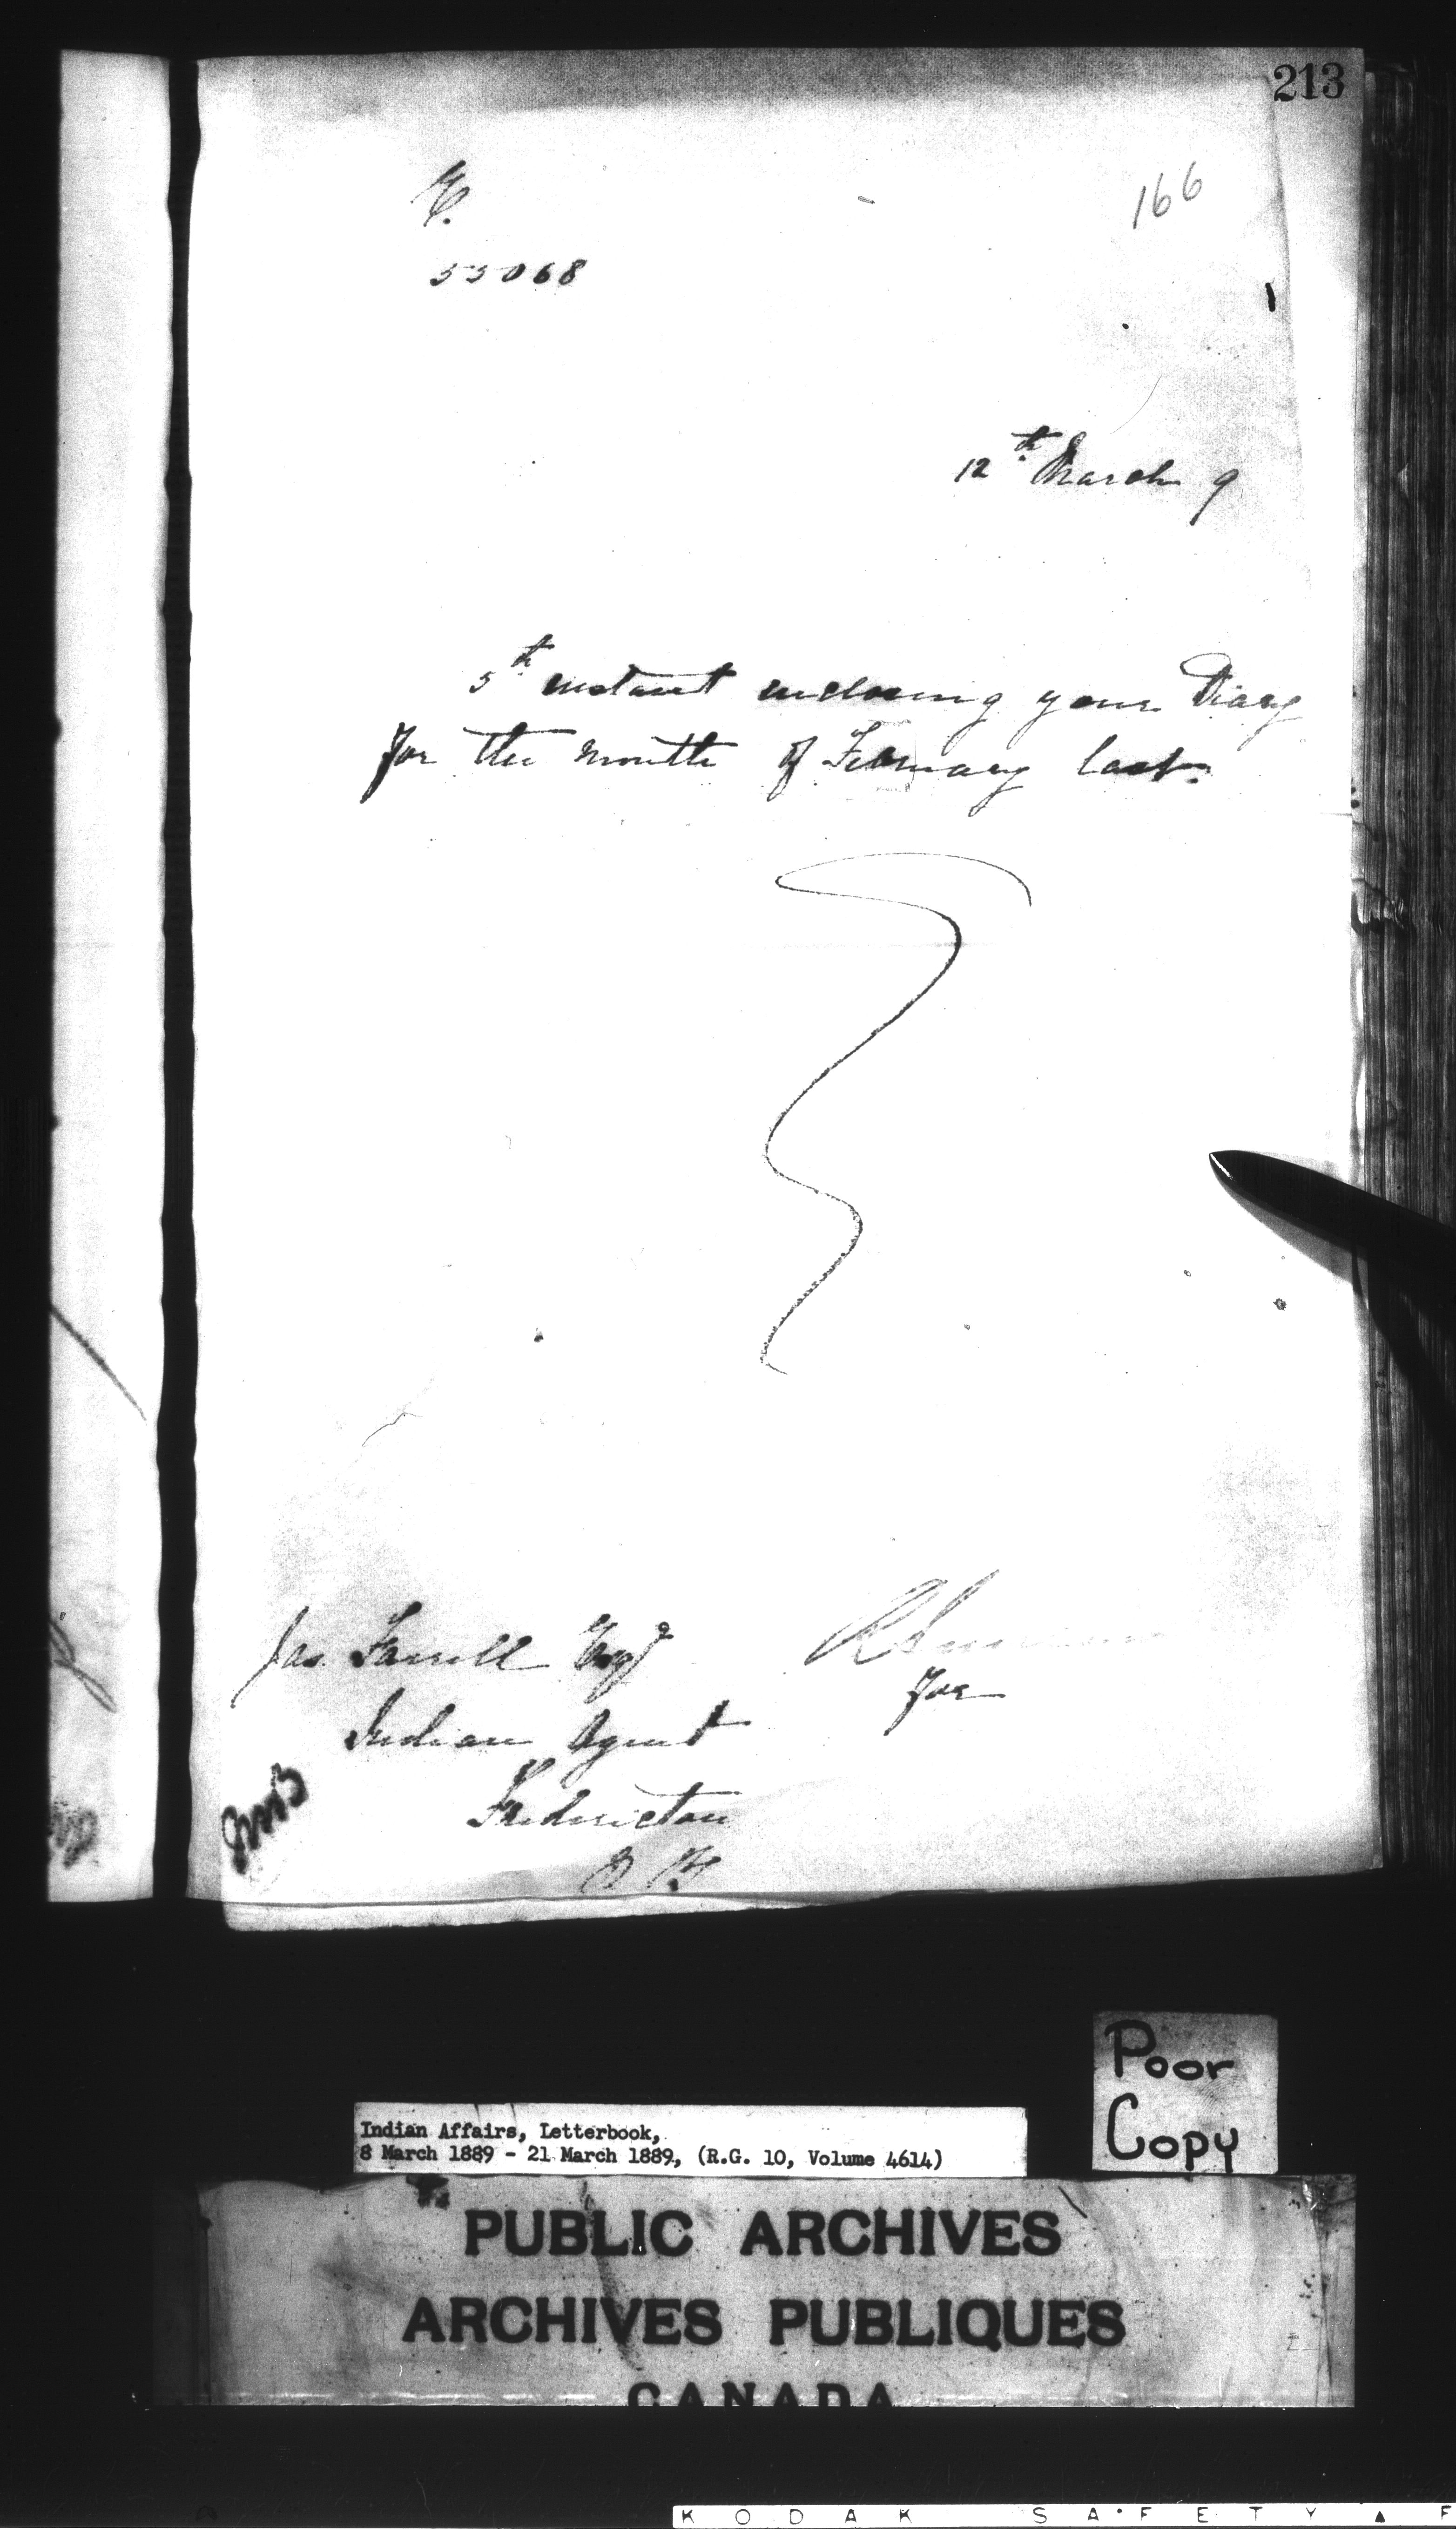 213
166
E.
55068
12th March 9
5th instant enclosing your Diary
for the month of February last.
Jas Farrell Esqr
for
Indian Agent
Fredericton
N B
Poor
Copy
Indian Affairs, Letterbook,
8 March 1889 - 21 March 1889, (R.G. 10, Volume 4614)
PUBLIC ARCHIVES
ARCHIVES PUBLIQUES
CANADA
KODAK SAFETY F